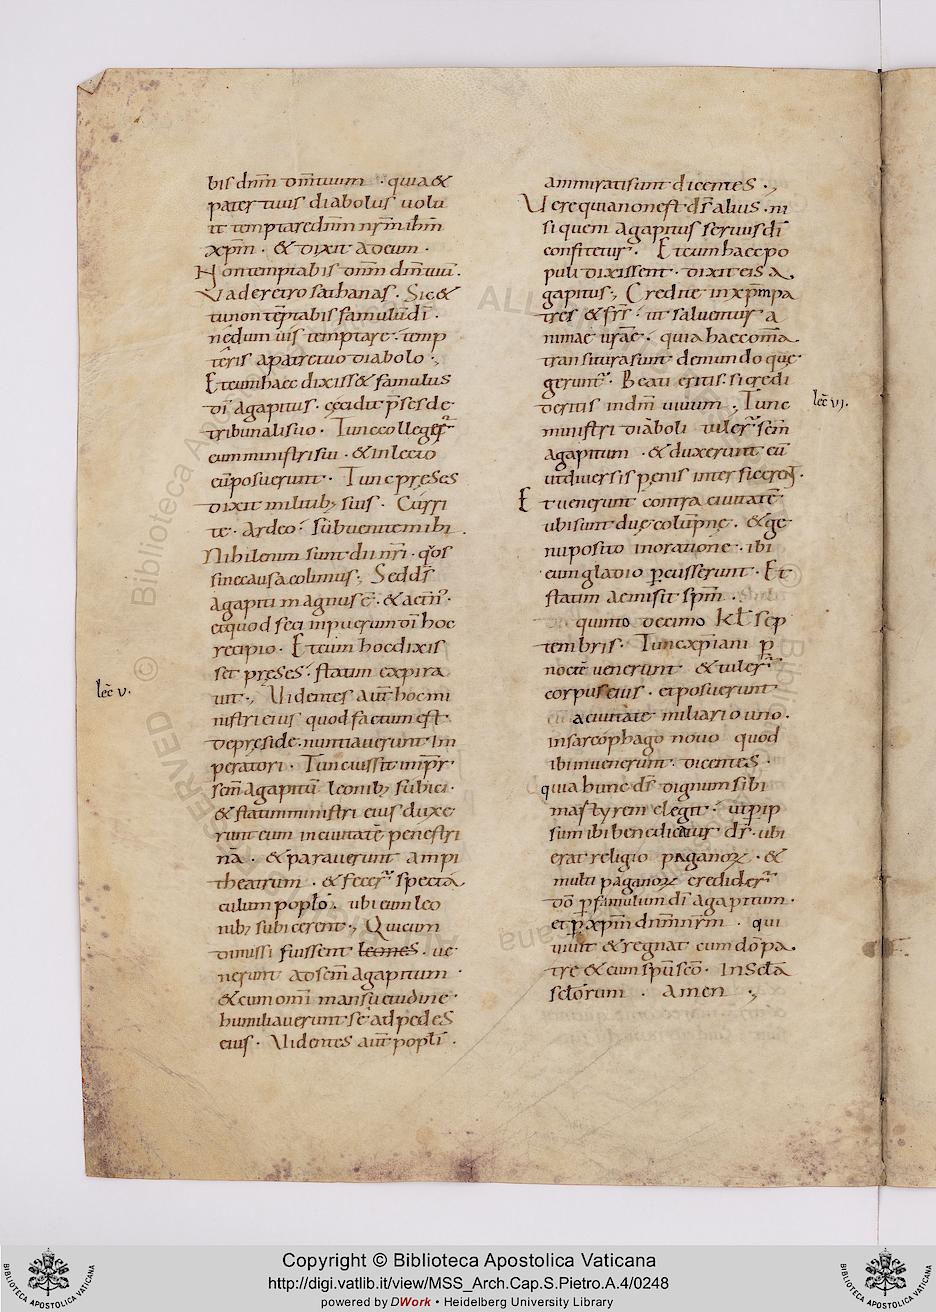 bis dnm̄ dm̄ tuum · quia &
pater tuus diabolus uolu
it temptare dnm̄ nrm̄ ihm̄
xp̄m · & dixit ad eum ·
Non temptabis dnm̄ dm̄ tuū ·
Vade retro sathanas · Sic &
tu non tēptabis famulū dī ·
nedum uis temptare · temp
teris a patre tuo diabolo ·,
Et cum haec dixiss& famulus
dī agapitus · cecidit p̄ses de
tribunali suo · Tunc colleger̄
eum ministri sui · & in lecto
eū posuerunt · Tunc preses
dixit militib; suis · Curri
te · ardeo · subuenite mihi ·
Nihil enim sunt dii nr̄i · q̊s
sine causa colimus ·, Sed ds̄
agapiti magnus ē · & aet̄n̄ ·
et quod feci in puerum dī hoc
recipio · Et cum hoc dixis
set preses · statim expira
uit ·, Uidentes aut̄ hoc mi
lec̄ v.
nistri eius quod factum est ·
de preside · nuntiauerunt im
peratori · Tunc iussit imp̄r ·
sc̄m agapitū leonib; subici ·
& statim ministri eius duxe
runt eum in ciuitatē penestri
nā · & parauerunt ampi
theatrum · & fecer̄ specta
culum popl̄o · ubi eum leo
nib; subicerent ·, Qui cum
dimissi fuissent leones · ue
nerunt ad sc̄m agapitum ·
& cum omi mansuetudine ·
humiliauerunt se ad pedes
eius · Uidentes aut̄ popl̄i ·
ammirati sunt dicentes ·,
Vere quia non est ds̄ alius · ni
si quem agapitus seruus dī
confitetur · Et cum haec po
puli dixissent · dixit eis a
gapitus ·, Credite in xp̄m pa
tres & fr̄s · ut saluentur a
nimae urāe · quia haec omā
transitura sunt de mundo que
gerunt̄ · Beati eritis · si credi
deritis in dm̄ uiuum ·, Tunc
lec̄ vj.
ministri diaboli tuler̄ sc̄m
agapitum · & duxerunt eū
ut diuersis penis interficerēt ·
Et uenerunt contra ciuitatē
ubi sunt due colūpne · & ge
nu posito in oratione · ibi
eum gladio p̄cusserunt · Et
statim aemisit sp̄m ·
quinto decimo kl̄ sep
tembris · Tunc xp̄iani p̄
noctē uenerunt & tuler̄
corpus eius · et posuerunt
a ciuitate miliario uno ·
in sarcophago nouo quod
ibi inuenerunt · dicentes ·
quia hunc ds̄ dignum sibi
martyrem elegit · ut p̄ ip
sum ibi benedicatur ds̄ · ubi
erat religio paganoꝝ · &
multi paganoꝝ credider̄
dō p̄ famulum dī agapitum ·
et p̄ xp̄m dnm̄ nrm̄ · qui
uiuit & regnat cum dō pa
tre & cum spū sc̄o · In sc̄la
sc̄lorum · Amen ·,
Copyright © Biblioteca Apostolica Vaticana
http://digi.vatlib.it/view/MSS_Arch.Cap.S.Pietro.A.4/0248
powered by DWork • Heidelberg University Library
BIBLIOTECA APOSTOLICA VATICANA
BIBLIOTECA APOSTOLICA VATICANA